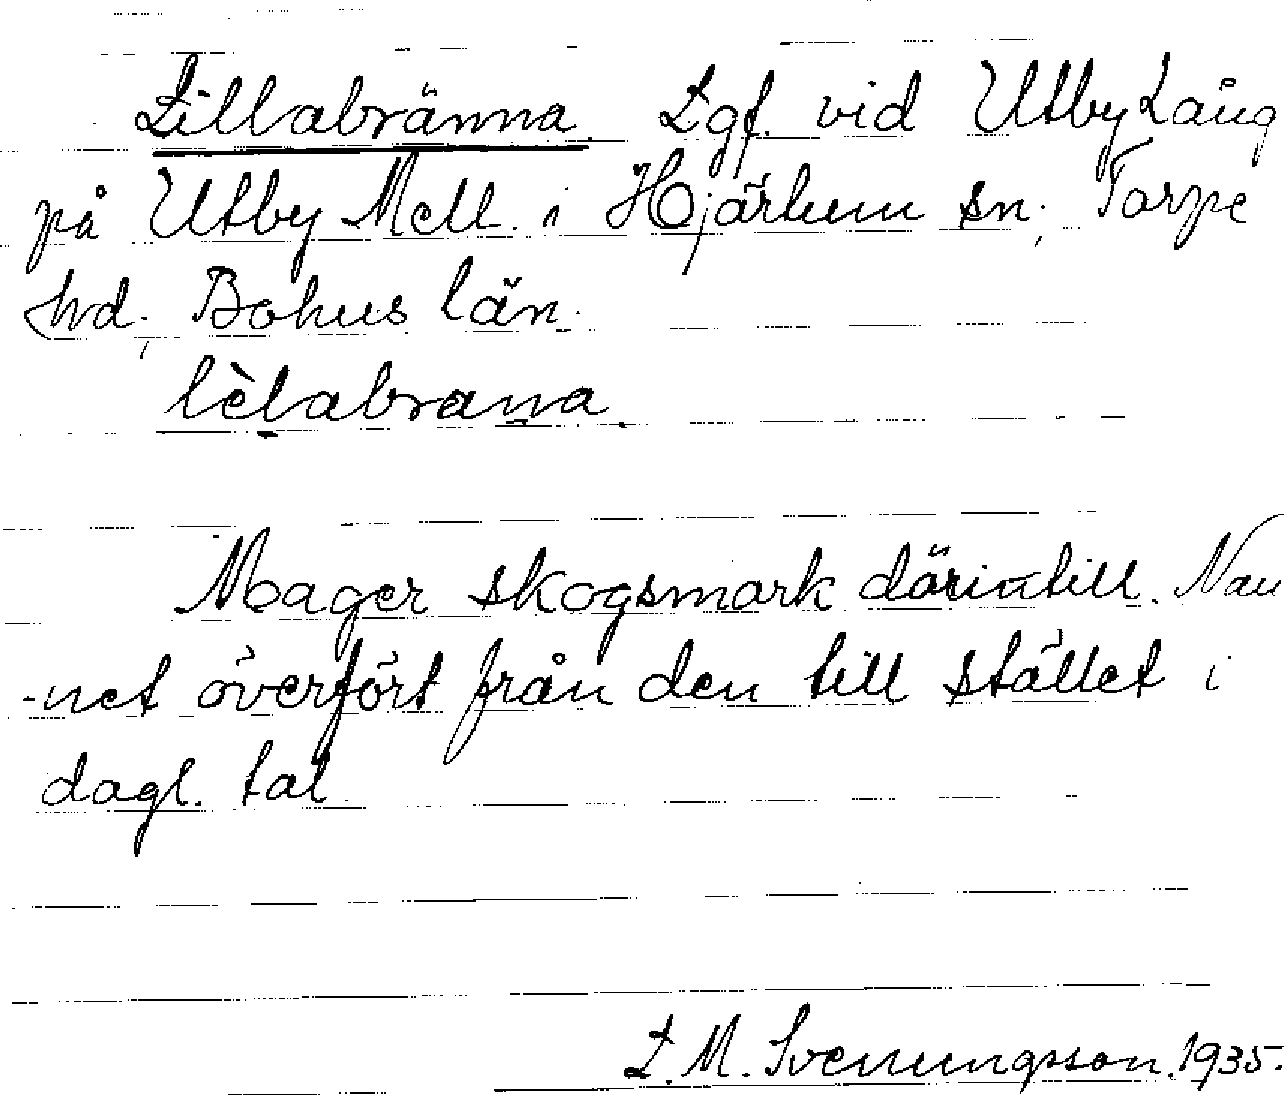 Lillabränna. Lgf. vid Utby Lång
på Utby Mell. i Hjärtum sn., Torpe
hd., Bohus län.
lèlabrana.
Mager skogsmark därintill. Nam
-net överfört från den till stället i
dagl. tal
L. M. Svenungsson. 1935.